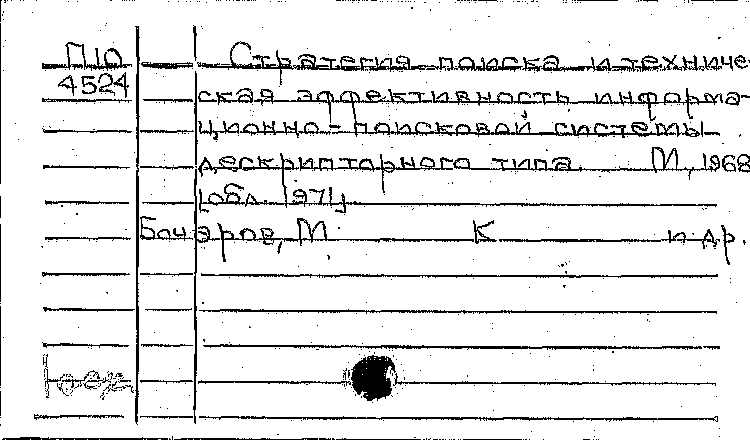 П10 Стратегия поиска и техниче-
4524 ская эффективность информа-
ционно-поисковой системы
дескрипторного типа. М., 1968
[обл. 1971].
Бочаров, М. К и др.